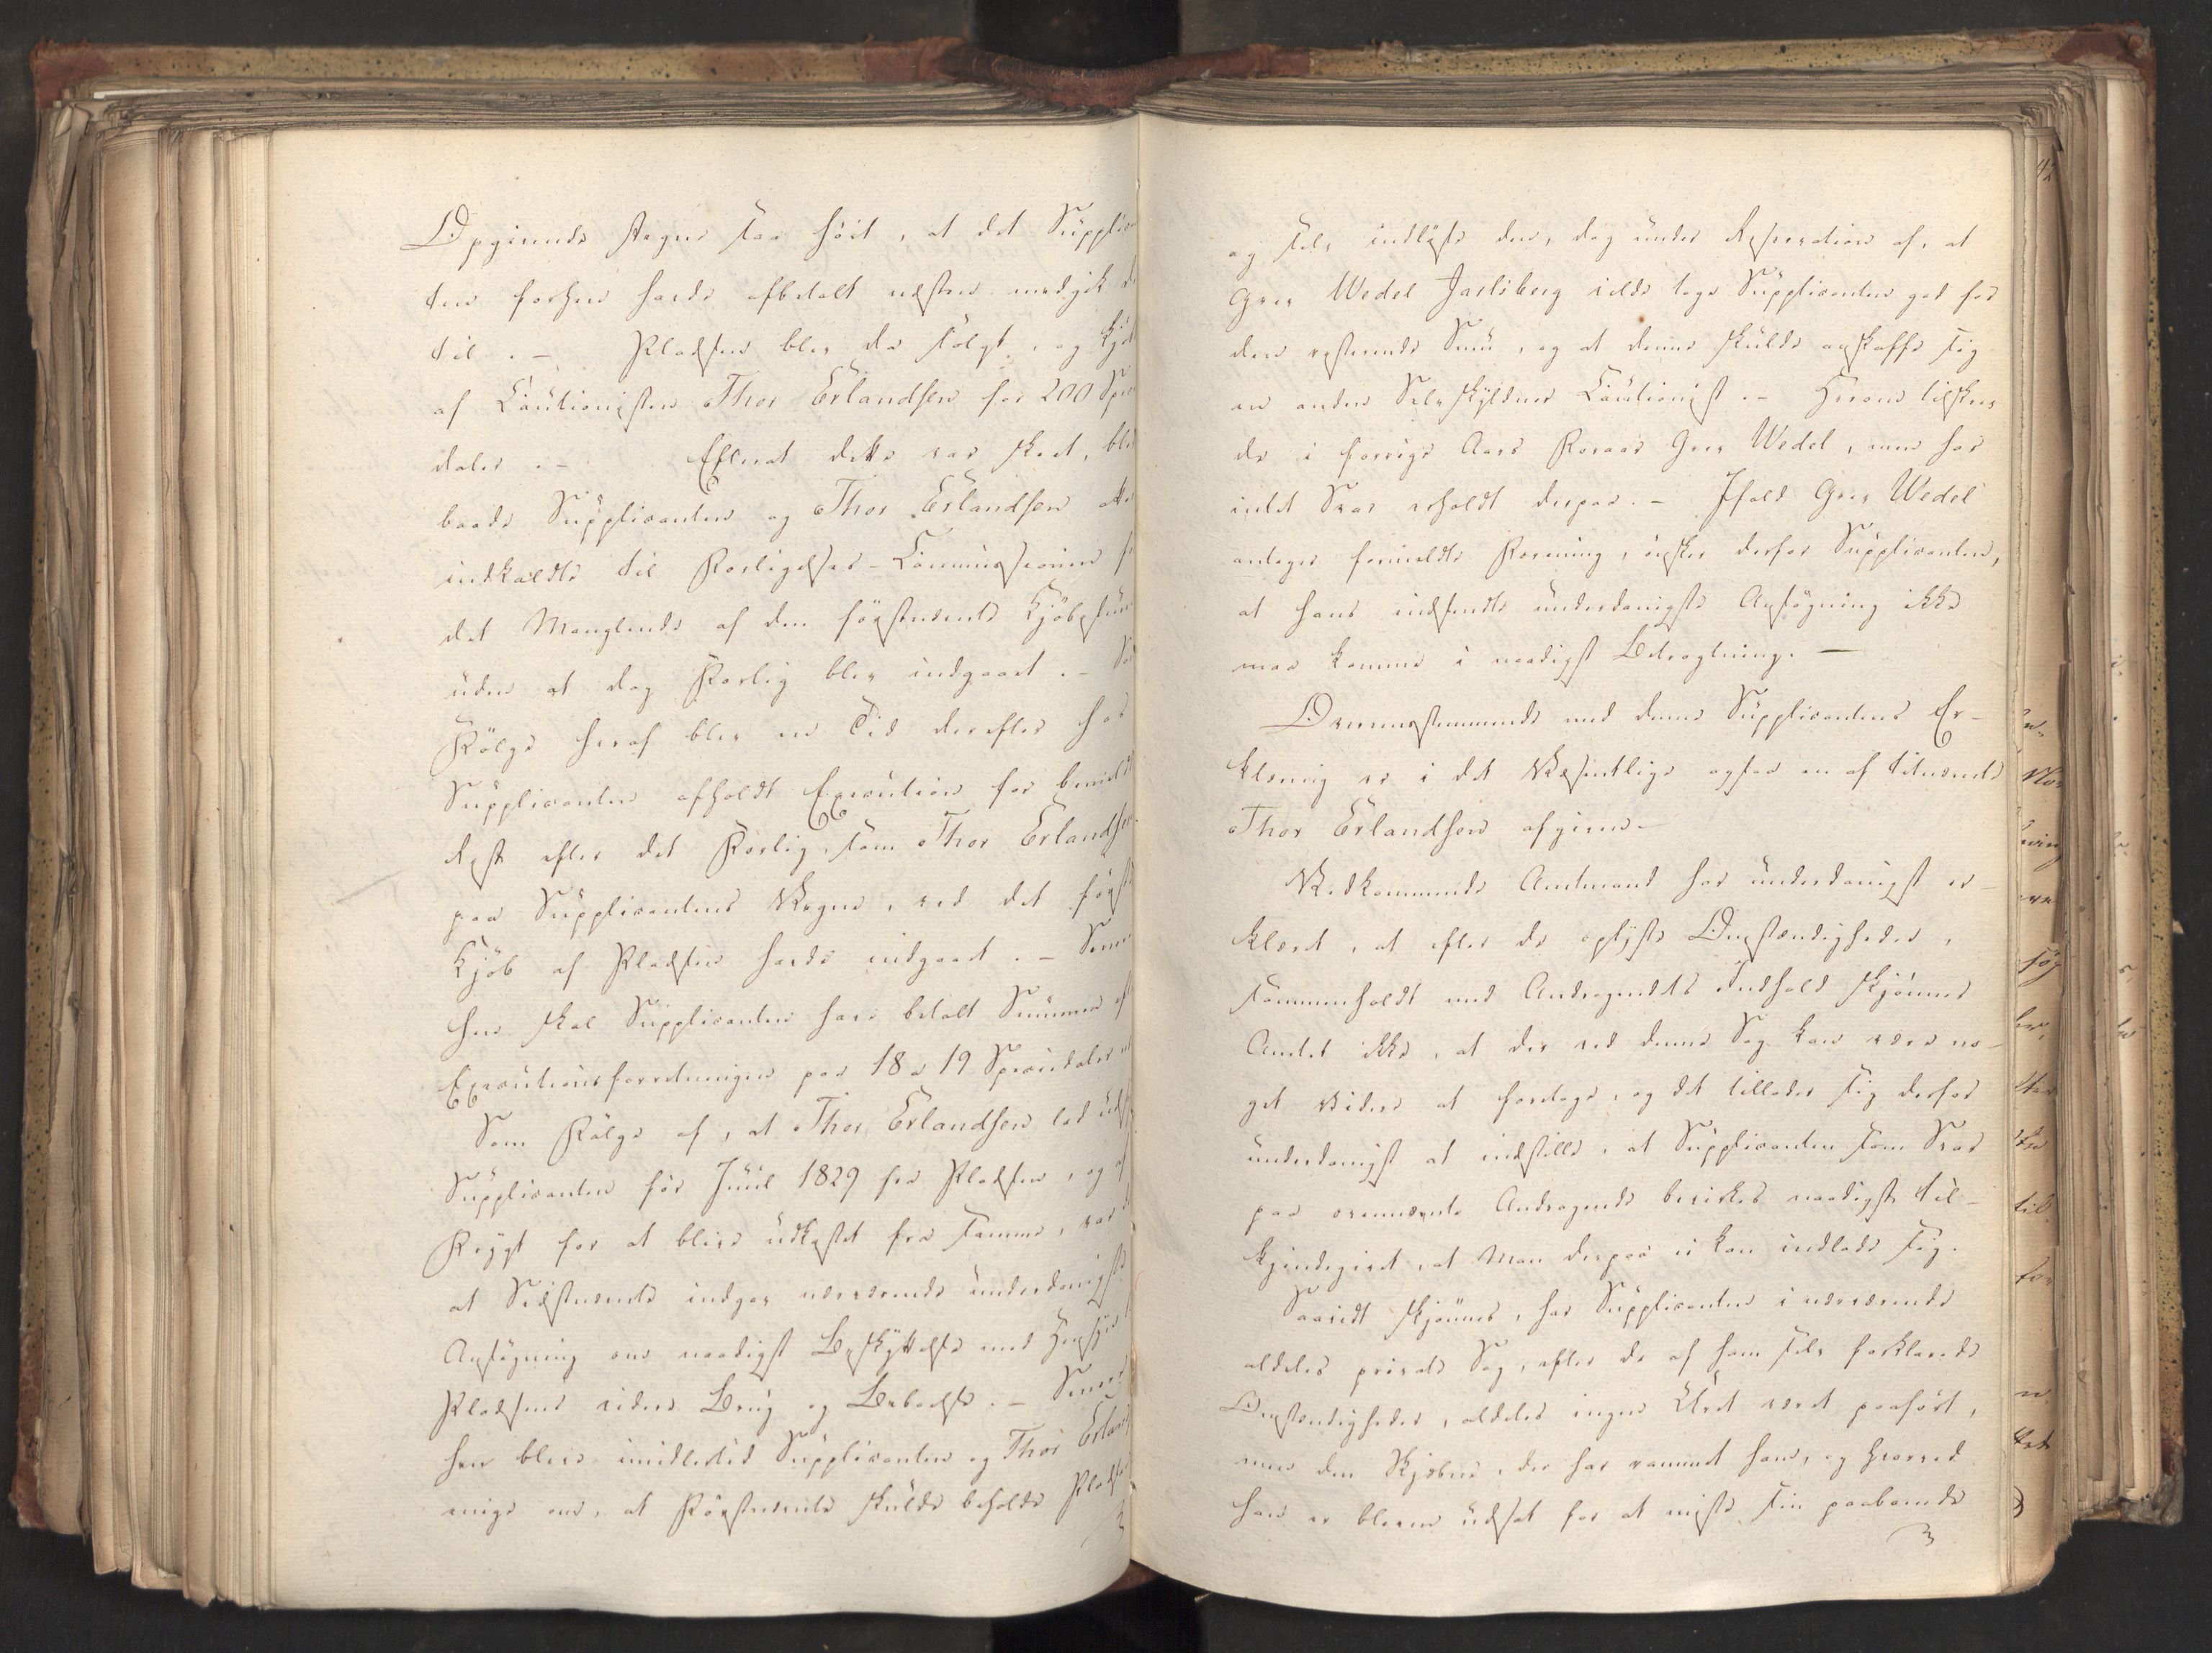 Opgivende stegne saa höit, at det Supplican
ten forhen havde afbetalt næsten medgik der
til. – Pladsen blev da solgt, og kjöbt
af Cautionisten Thor Erlandsen for 200 Specie
daler. – Efterat dette var skeet, blev
baade Supplicanten og Thor Erlandsen atter
indkaldte til Forligelses-Commissionen for
det Manglende af den förstnævnte Kjöbesum
uden at dog Forlig blev indgaaet. – Som
Fölge heraf blev en Tid derefter hos
Supplicanten afholdt Execution for bemeldte
Rest efter det Forlig, som Thor Erlandsen
paa Supplicantens Vegne, ved det först
Kjöb af Pladsen havde indgaaet. – Senere
hen skal Supplicanten have betalt Summen af
Executionsforretningen paa 18 a 19 Speciedaler
Som Fölge af, at Thor Erlandsen lod uds
Supplicanten för Juul 1829 fra Pladsen, og af
Frygt for at blive udkastet fra samme, var
at Sidstnævnte indgav nærværende underdanigste
Ansögning om naadigst Beskyttelse med Hensyn
Pladsens videre Brug og Beboelse. – Senere
hen blev imidlertid Supplicanten og Thor Erland
enige om, at Förstnævnte skulde beholde Pladsen
og selv indlöse den, dog under Reservation af, at
Grev Wedel Jarlsberg vilde tage Supplicanten god for
den resterende Sum, og at denne skulde anskaffe sig
en anden Selvskyldner Cautionist. – Herom tilskrev
de i forrige Aars Foraar Grev Wedel, men har
intet Svar erholdt derpaa. – Ifald Grev Wedel
antager formeldte Forening, önsker derfor Supplicanten,
at hans indsendte underdanigste Ansögning ikke
maa komme i naadigst Betragtning. –
Overensstemmende med denne Supplicantens Er-
klæring er i det Væsentlige ogsaa en af bemeldte
Thor Erlandsen afgiven –
Vedkommende Amtmand har underdanigst er-
klæret, at efter de oplyste Omstændigheder,
sammenholdt med Andragendets Indhold skjönner
Amtet ikke, at der ved denne Sag kan være no-
get videre at foretage, og det tillader sig derfor
underdanigst at indstille, at Supplicanten som Svar
paa ovennævnte Andragende bevirkes naadigst til-
kjendegivet, at Man derpaa ei kan indlade sig.
Saavidt skjönnes, har Supplicanten i nærværende
aldeles private Sag, efter de af ham selv forklarede
Omstændigheder, aldeles ingen Uret været paafört,
men den Skjæbne, der har rammet ham, og hvorved
han er bleven udsat for at miste sin paaboende